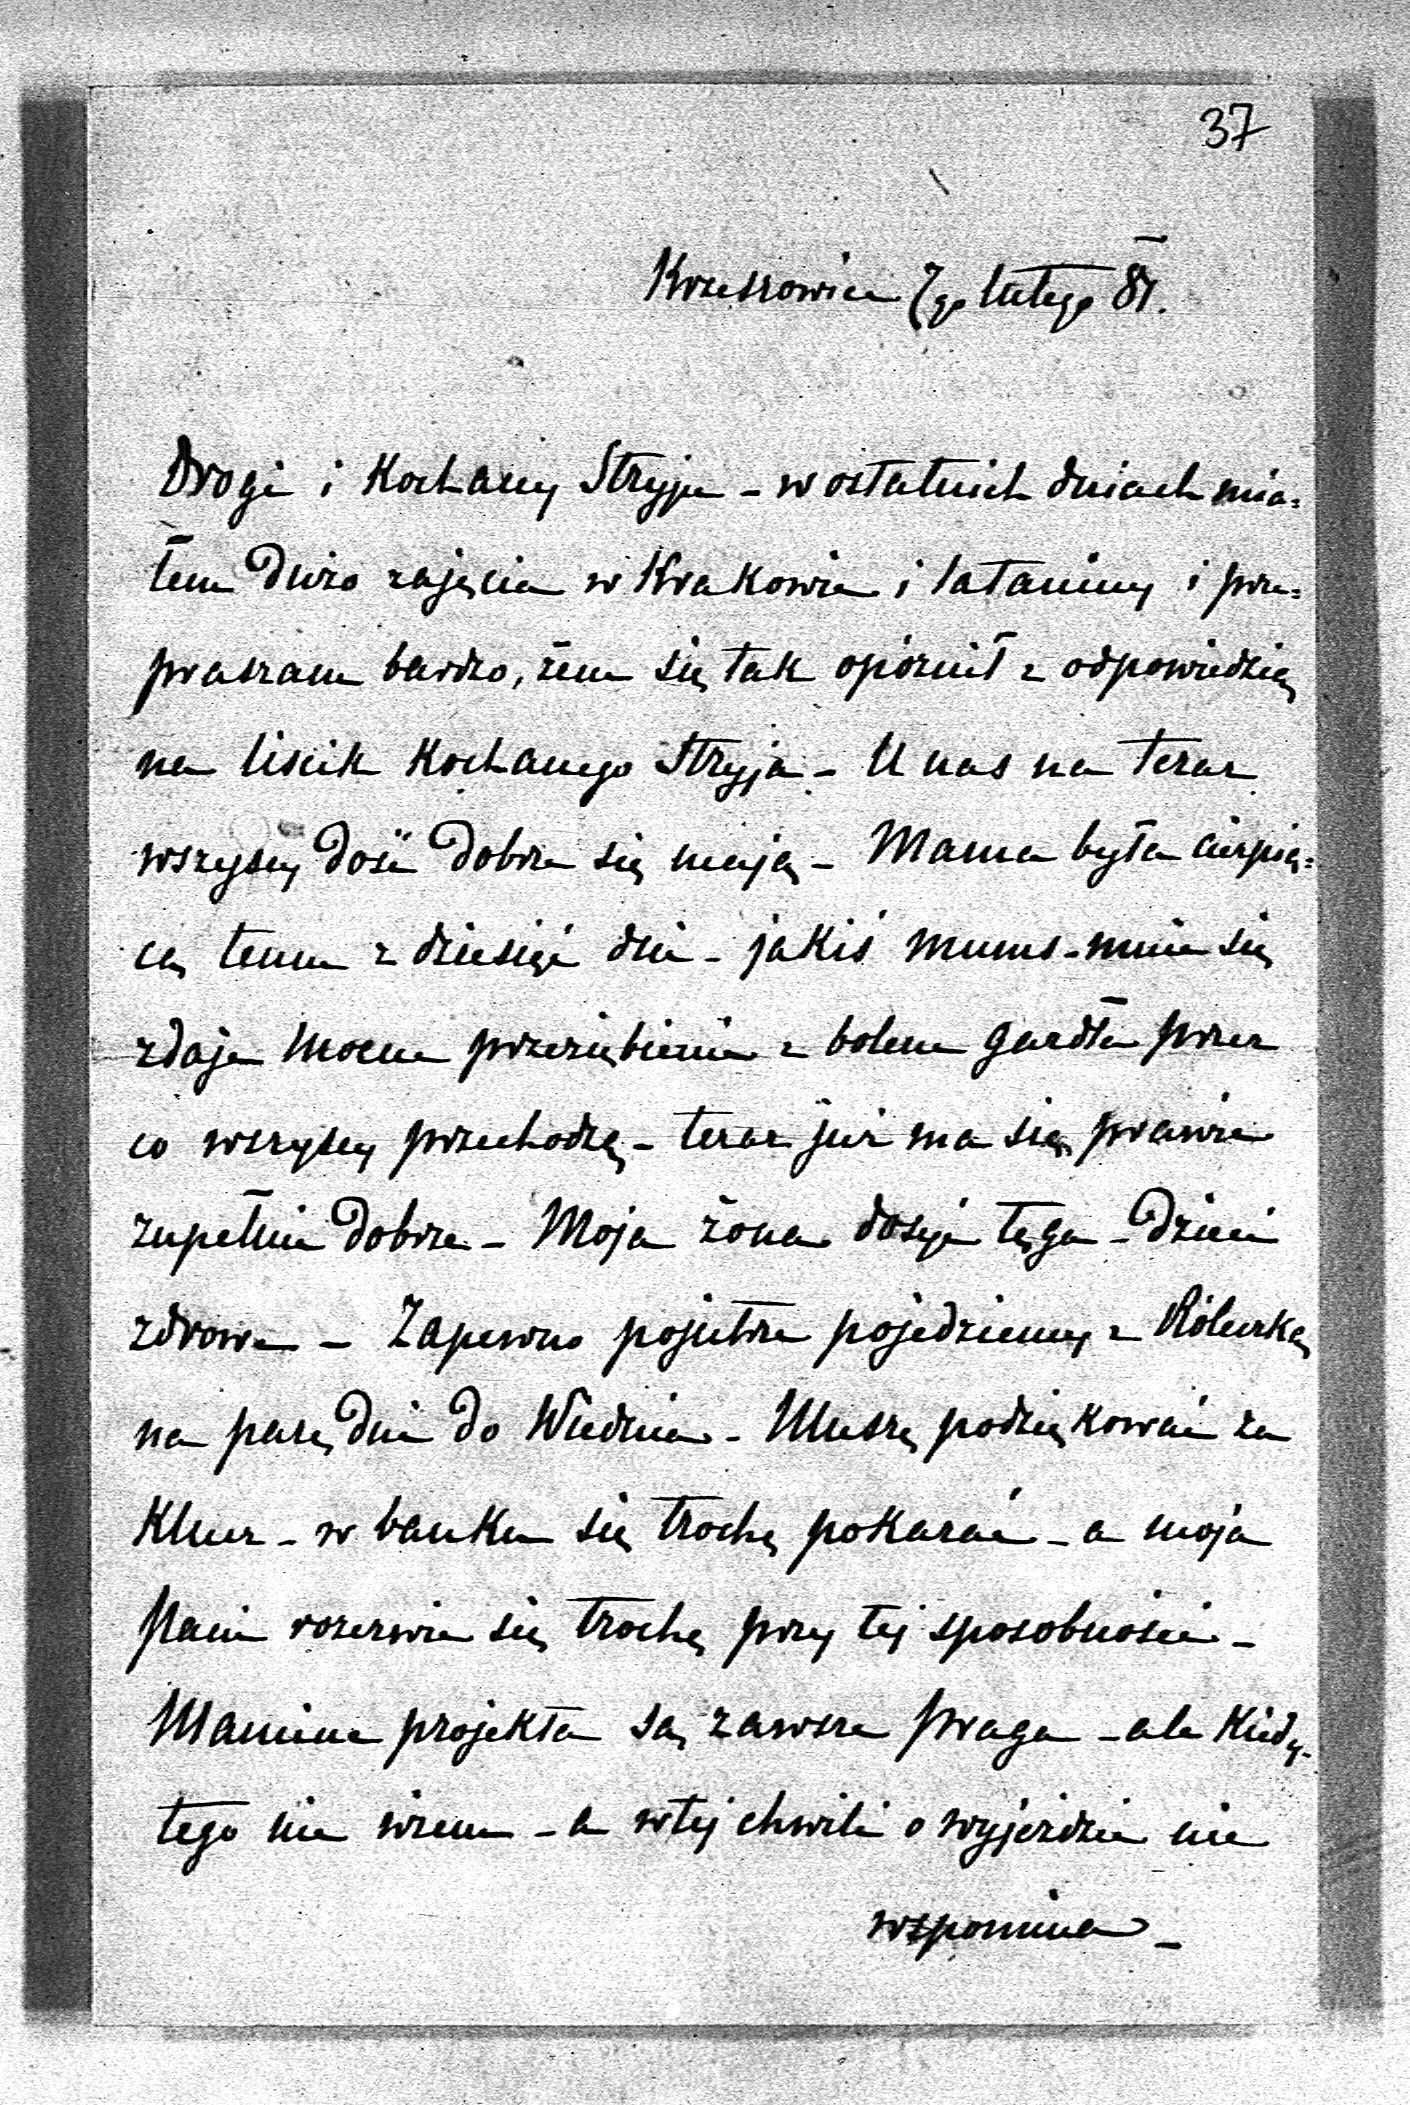 37
Krzeszowice 7go lutego 81.
Drogi i Kochany Stryju - w ostatnich dniach mia=
łem dużo zajęcia w Krakowie i łataniny i prze=
praszam bardzo, żem się tak opóźnił z odpowiedzią
na liścik Kochanego Stryja - U nas na teraz
wszyscy dość dobrze się mają - Mama była cierpią=
cą temu z dziesięć dni - jakiś mums - mnie się
zdaje mocne przeziębienie z bolem gardła przez
co wszyscy przechodzą - teraz już ma się prawie
zupełnie dobrze - Moja żona dosyć tęga - Dzieci
zdrowe - Zapewno pojutrze pojedziemy z Różeczką
na parę dni do Wiednia - Muszę podziękować za
Klucz - w banku się trochę pokazać - a moja
Pani rozerwie się trochę przy tej sposobności -
Mamine projekta są zawsze Praga - ale Kiedy -
tego nie wiem - a w tej chwili o wyjeździe nie
wspomina -